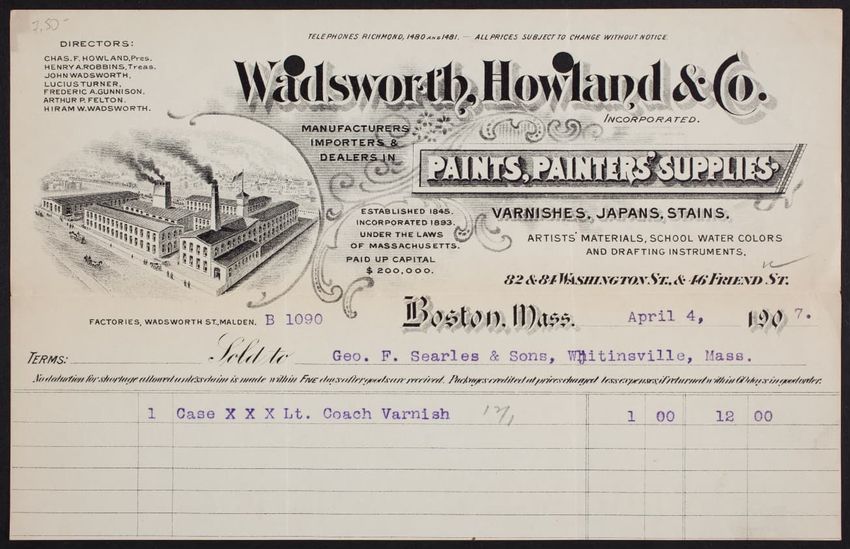 7.50
TELEPHONES RICHMOND, 1480 AND 1481. — ALL PRICES SUBJECT TO CHANGE WITHOUT NOTICE.
DIRECTORS:
CHAS. F. HOWLAND, Pres.
HENRY A. ROBBINS, Treas.
JOHN WADSWORTH,
LUCIUS TURNER,
FREDERIC A. GUNNISON,
ARTHUR P. FELTON.
HIRAM W. WADSWORTH.
Wadsworth, Howland & Co.
INCORPORATED.
MANUFACTURERS
IMPORTERS &
DEALERS IN
PAINTS, PAINTERS' SUPPLIES.
ESTABLISHED 1845.
INCORPORATED 1893.
UNDER THE LAWS
OF MASSACHUSETTS.
PAID UP CAPITAL
$200,000.
VARNISHES, JAPANS, STAINS,
ARTISTS' MATERIALS, SCHOOL WATER COLORS
AND DRAFTING INSTRUMENTS,
82 & 84 WASHINGTON ST., & 46 FRIEND ST.
FACTORIES, WADSWORTH ST., MALDEN. B 1090
Boston, Mass. April 4, 1907.
TERMS: Sold to Geo. F. Searles & Sons, Whitinsville, Mass.
No deduction for shortage allowed unless claim is made within FIVE days after goods are received. Packages credited at prices charged less expenses, if returned within 60 days in good order.
1 Case X X X Lt. Coach Varnish 12/1 1 00 12 00